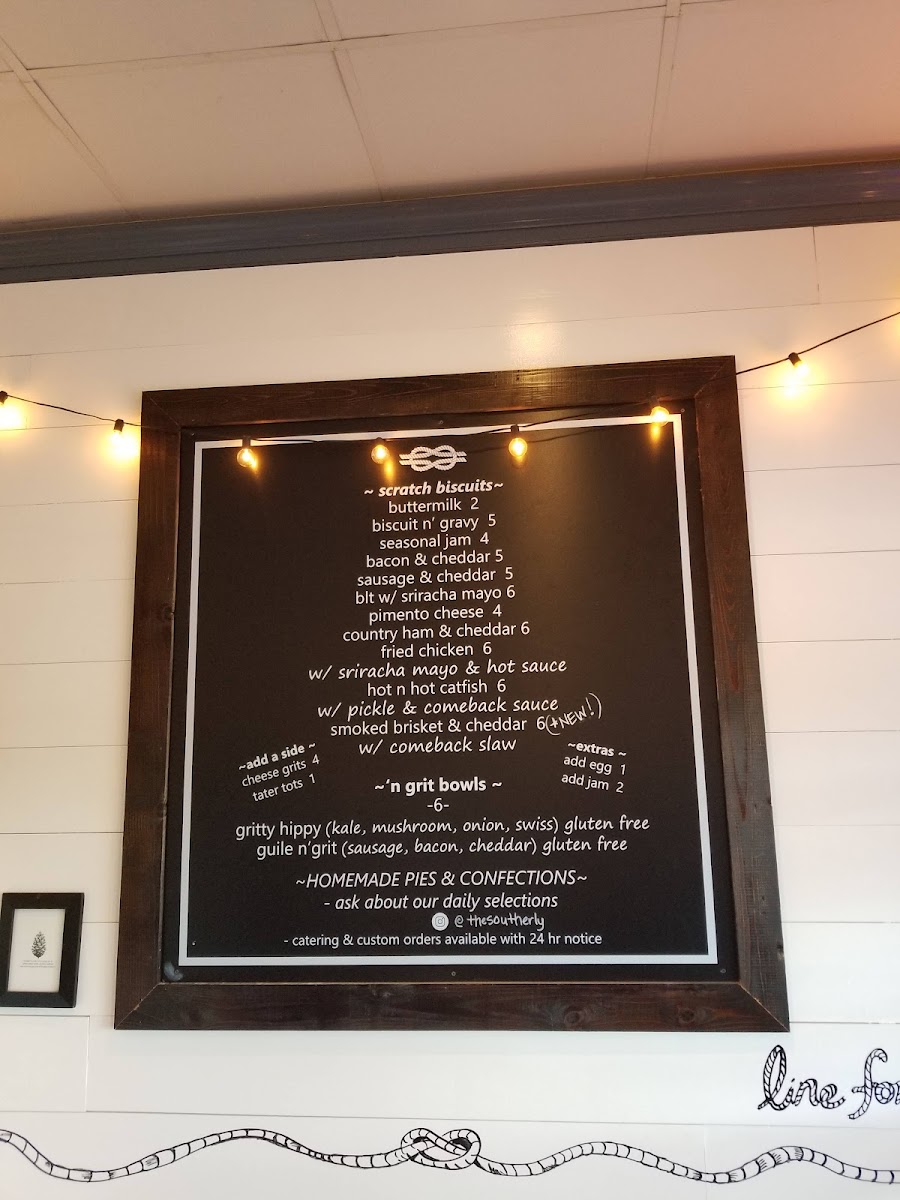 ~ scratch biscuits~
buttermilk 2
biscuit n' gravy 5
seasonal jam 4
bacon & cheddar 5
sausage & cheddar 5
blt w/ sriracha mayo 6
pimento cheese 4
country ham & cheddar 6
fried chicken 6
w/ sriracha mayo & hot sauce
hot n hot catfish 6
w/ pickle & comeback sauce
smoked brisket & cheddar 6 (*NEW!)
w/ comeback slaw
~add a side ~
cheese grits 4
tater tots 1
~extras ~
add egg 1
add jam 2
~'n grit bowls ~
-6-
gritty hippy (kale, mushroom, onion, swiss) gluten free
guile n'grit (sausage, bacon, cheddar) gluten free
~HOMEMADE PIES & CONFECTIONS~
- ask about our daily selections
@thesoutherly
- catering & custom orders available with 24 hr notice
line for